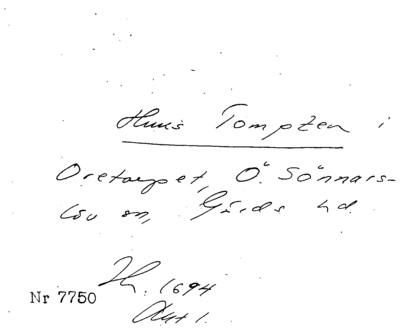 Huus Tompten i
Oretorpet, Ö. Sönnars-
löv sn, Gärds hd.
1694
Nr 7750
Akt 1.